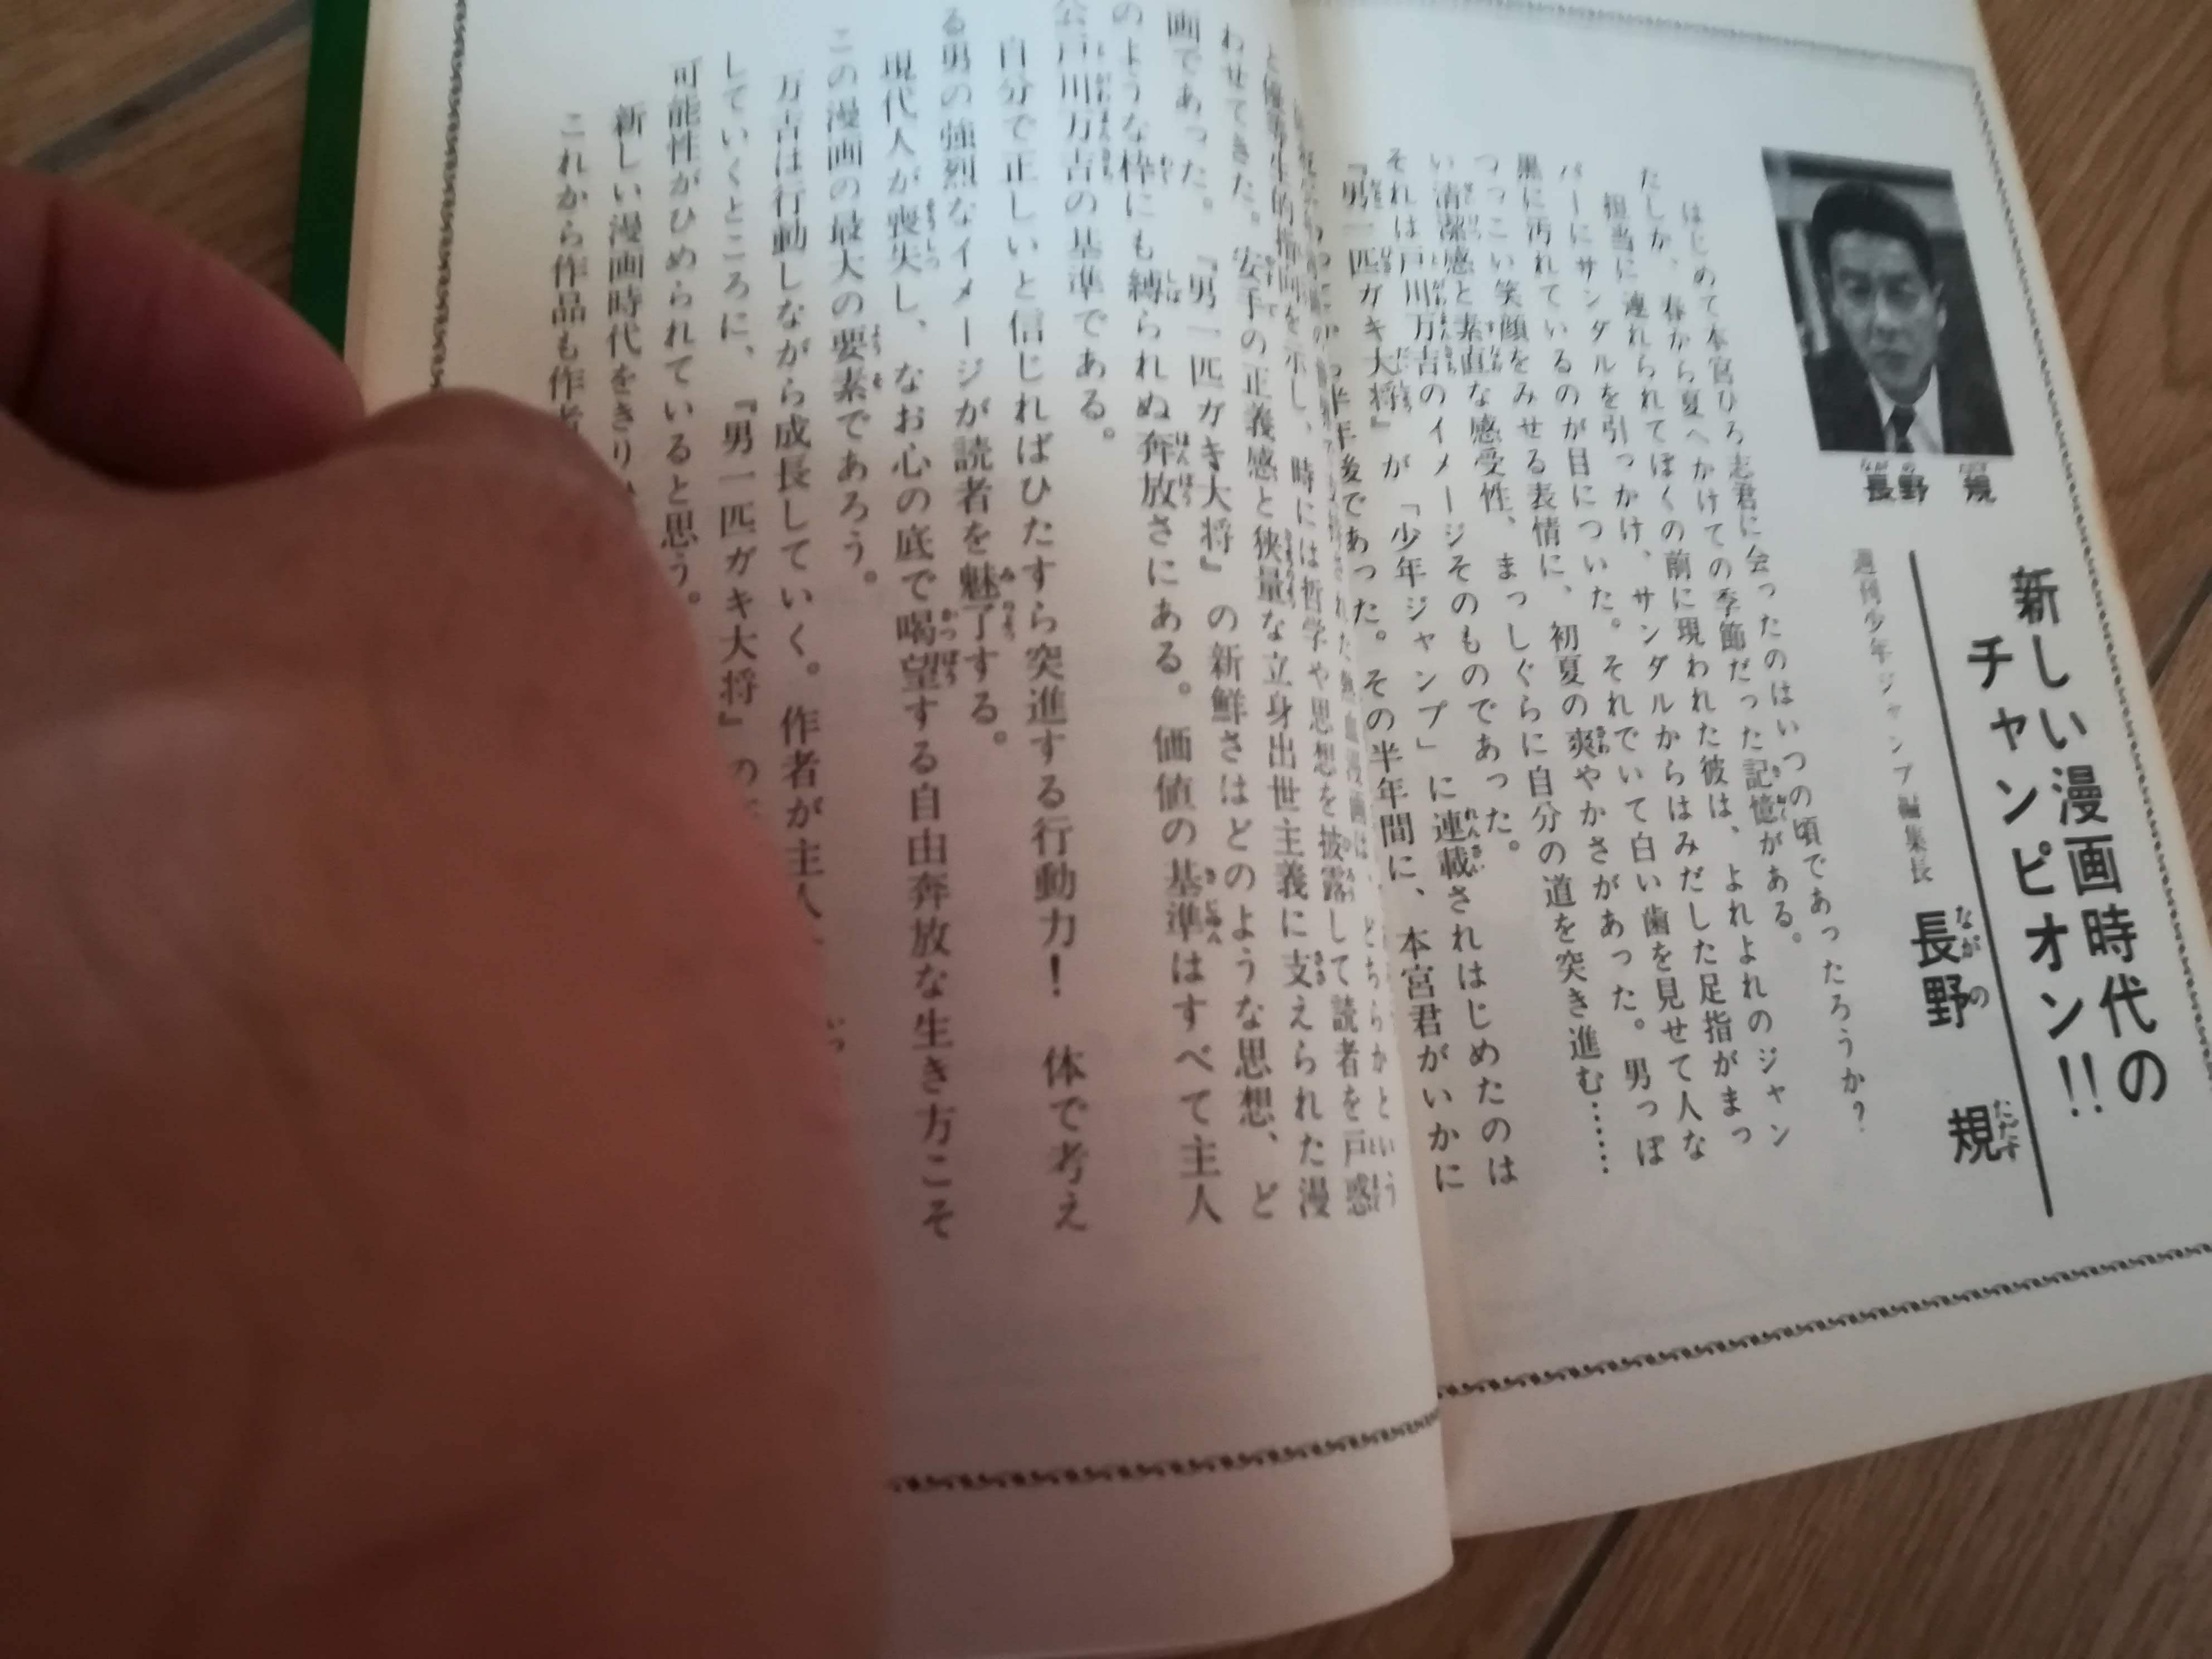 新しい漫画時代の
チャンピオン!!
週刊少年ジャンプ編集長 長野 規
長野 規
はじめて本宮ひろ志君に会ったのはいつの頃であったろうか?
たしか、春から夏へかけての季節だった記憶がある。
担当に連れられてぼくの前に現われた彼は、よれよれのジャン
パーにサンダルを引っかけ、サンダルからはみだした足指がまっ
黒に汚れているのが目についた。それでいて白い歯を見せて人な
つっこい笑顔をみせる表情に、初夏の爽やかさがあった。男っぽ
い清潔感と素直な感受性、まっしぐらに自分の道を突き進む……
それは戸川万吉のイメージそのものであった。
『男一匹ガキ大将』が「少年ジャンプ」に連載されはじめたのは
半年後であった。その半年間に、本宮君がいかに
どちらかという
と優等生的指向を示し、時には哲学や思想を披露して読者を戸惑
わせてきた。安手の正義感と狭量な立身出世主義に支えられた漫
画であった。『男一匹ガキ大将』の新鮮さはどのような思想、ど
のような枠にも縛られぬ奔放さにある。価値の基準はすべて主人
公戸川万吉の基準である。
自分で正しいと信じればひたすら突進する行動力! 体で考え
る男の強烈なイメージが読者を魅了する。
現代人が喪失し、なお心の底で喝望する自由奔放な生き方こそ
この漫画の最大の要素であろう。
万吉は行動しながら成長していく。作者が主人
していくところに、『男一匹ガキ大将』の
可能性がひめられていると思う。
新しい漫画時代をきり
これから作品も作者